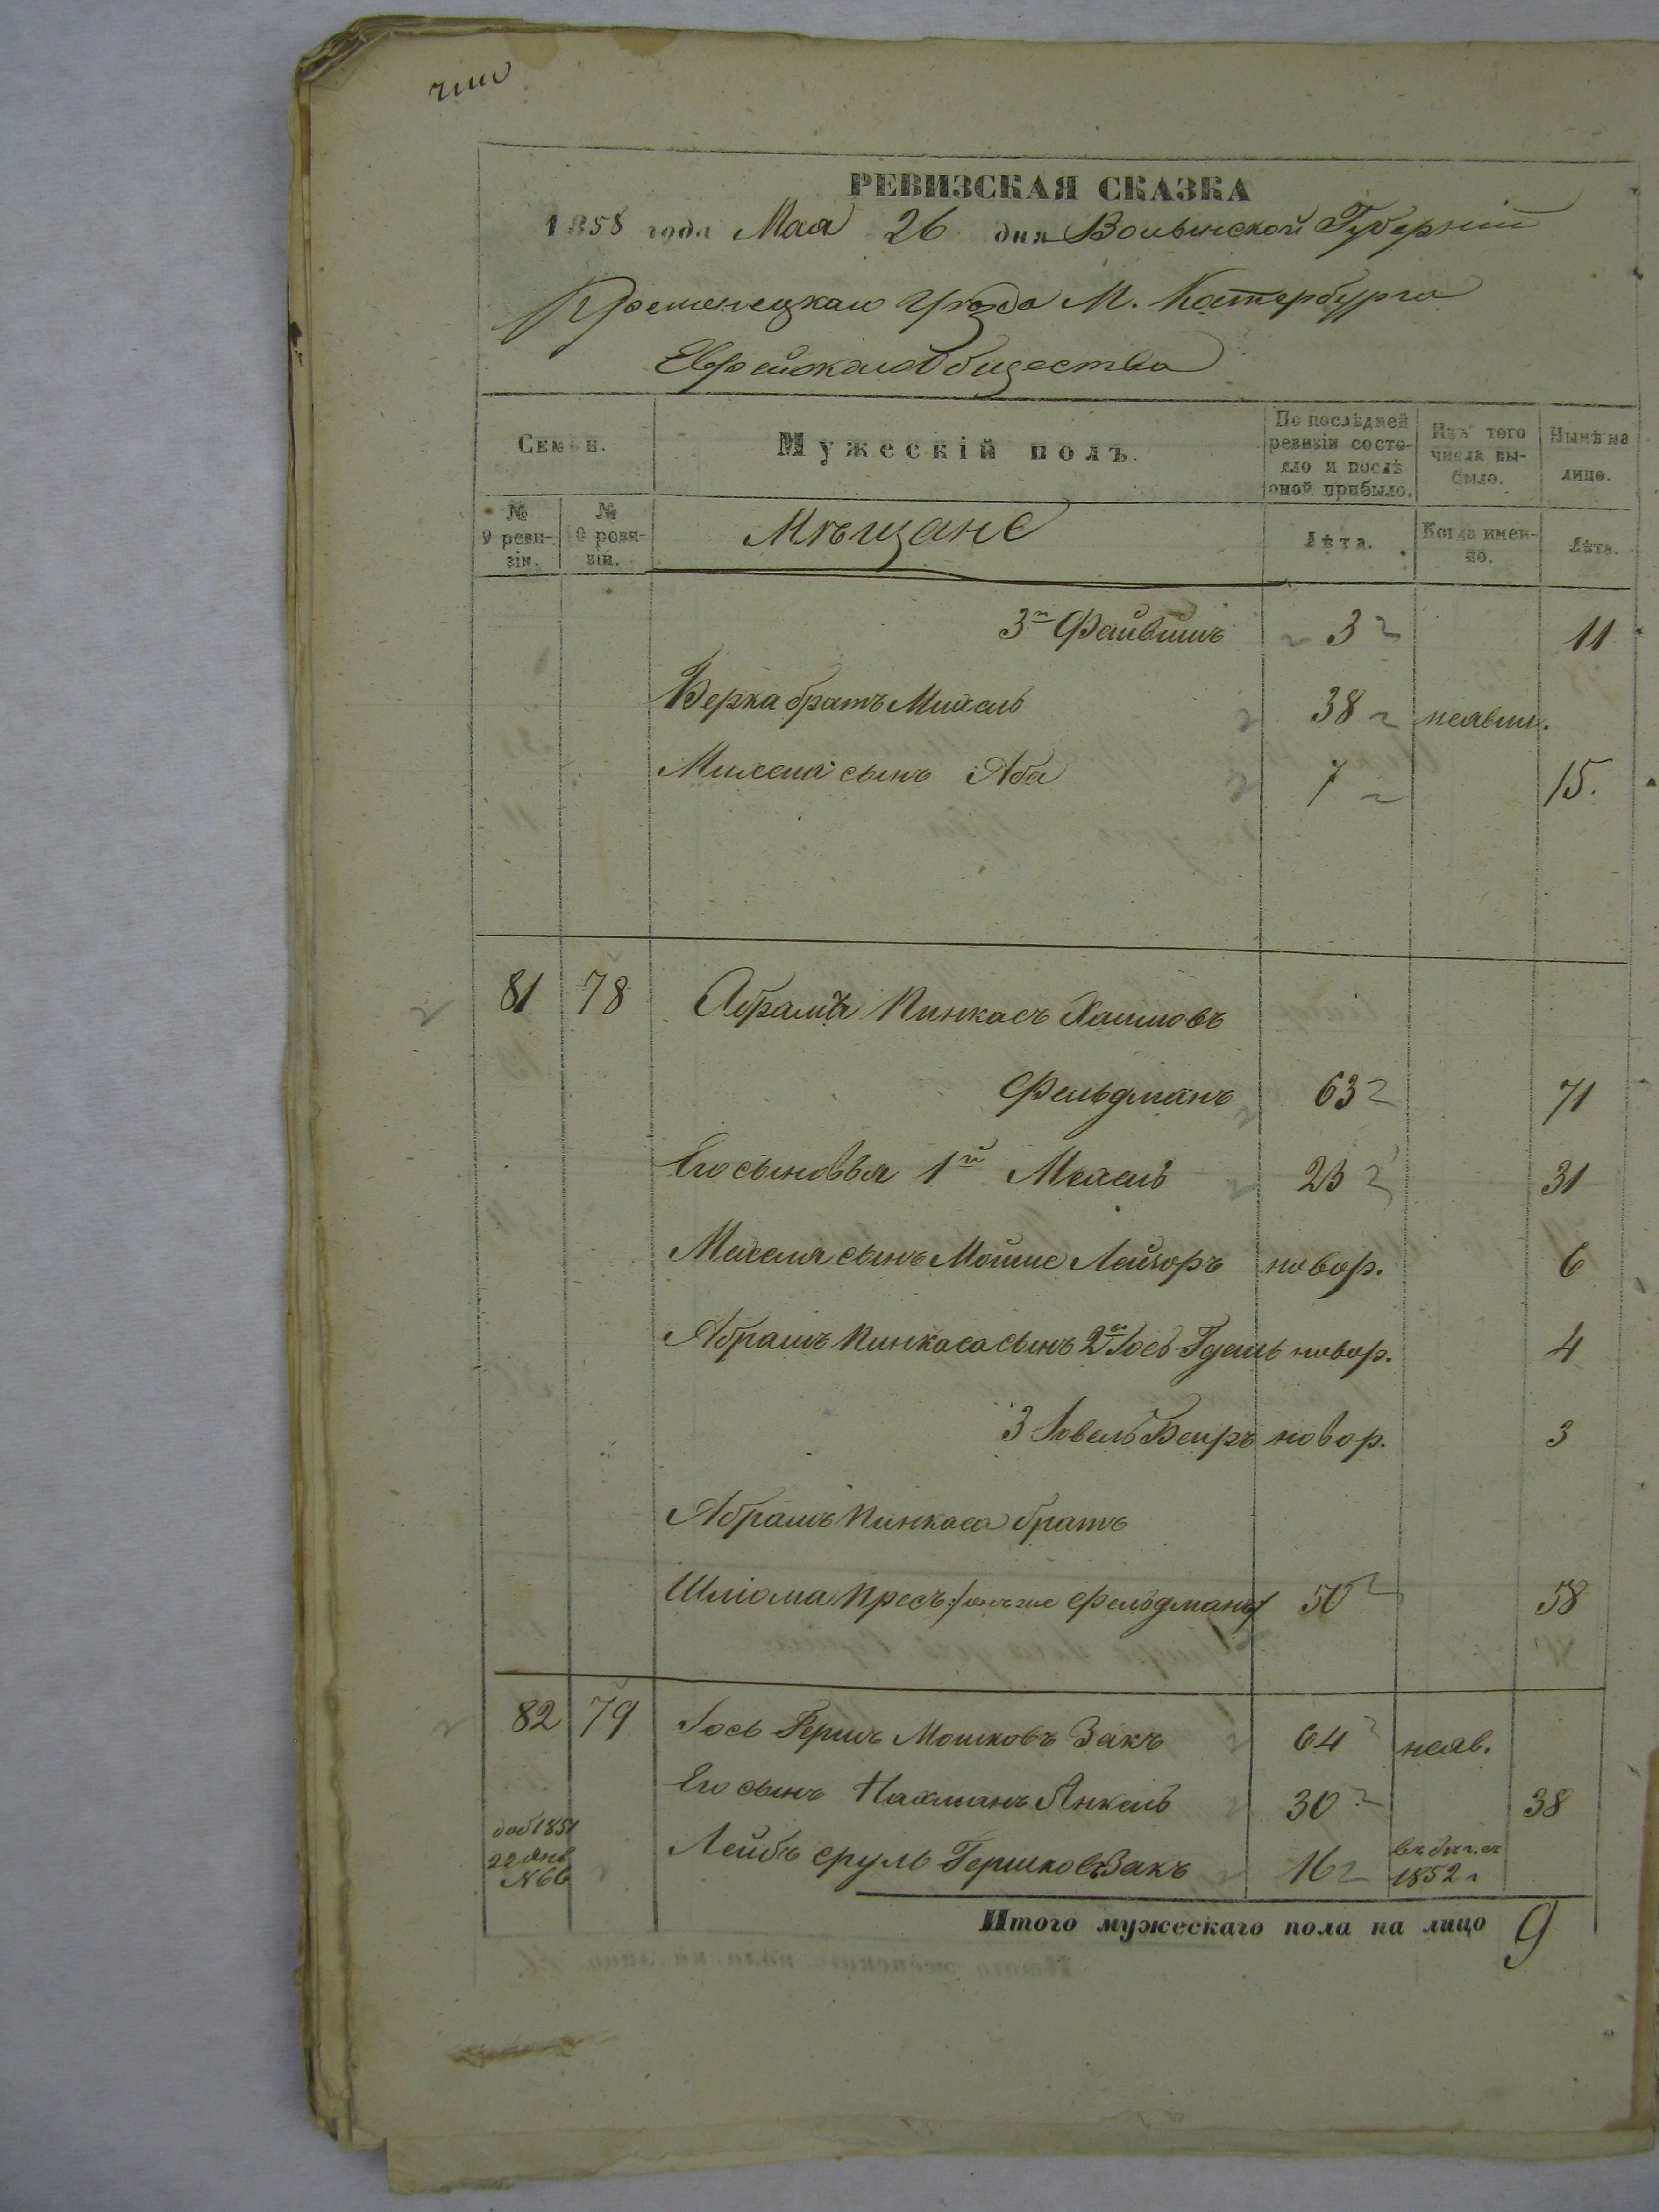 РЕВИЗСКАЯ СКАЗКА
1858 года Мая 26 дня Волынской Губерніи
Кременецкаго Уѣзда М. Катербурга
Еврейскаго Общества
Семьи.
Мужескій полъ.
По послѣдней ревизіи состояло и послѣ оной прибыло.
Изъ того числа выбыло.
Нынѣ на лицо.
№ 9 ревизіи.
№ 0 ревизіи.
Мѣщане
Лѣта.
Когда именно.
Лѣта.
3й Файвишъ 3 11
Берка братъ Михель 38 неявил.
Михеля сынъ Аба 7 15.
81 78 Абрамъ Пинкасъ Хаимовъ
Фельдманъ 63 71
Его сыновья 1й Мехель 23 31
Мехеля сынъ Мойше Лейзоръ новор. 6
Абрамъ Пинкаса сынъ 2й Іось Гдаль новор. 4
3 Іовель Бенръ новор. 3
Абрамъ Пинкаса братъ
Шліома Пресъ /онъ же Фельдманъ/ 50 58
82 79 Іось Гершъ Мошковъ Закъ 64 неяв.
Его сынъ Нахманъ Янкель 30 38
доб 1851
22 Янв
№66
Лейбъ Сруль Гершковъ Закъ 16 въ бѣг. съ 1852 г
Итого мужескаго пола на лицо 9